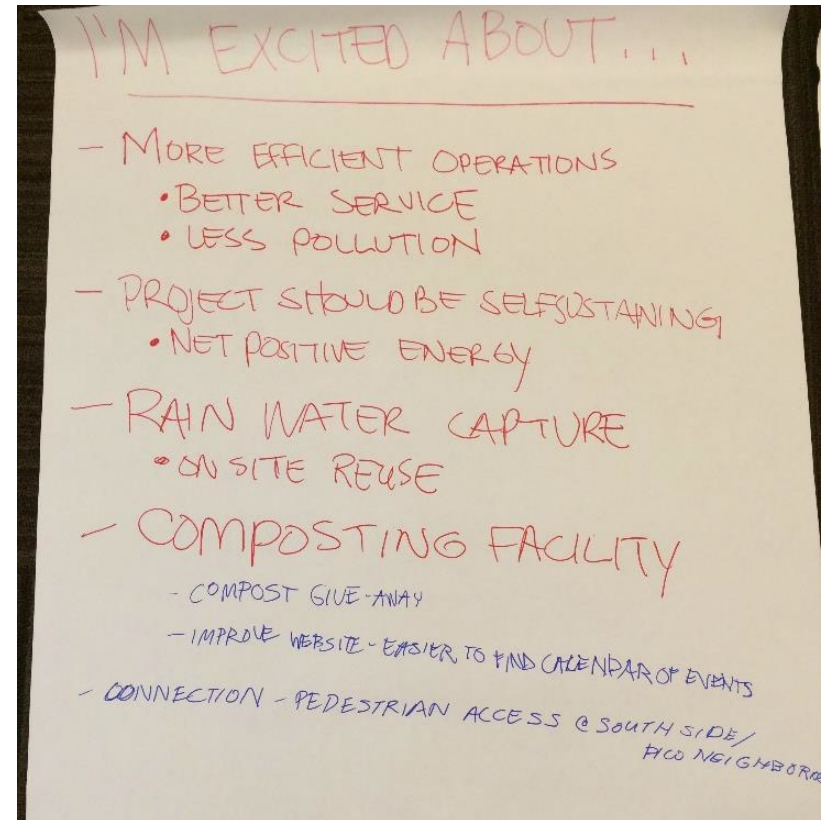 I'M EXCITED ABOUT...
- MORE EFFICIENT OPERATIONS
• BETTER SERVICE
• LESS POLLUTION
- PROJECT SHOULD BE SELFSUSTAINING
• NET POSITIVE ENERGY
- RAIN WATER CAPTURE
• ON SITE REUSE
- COMPOSTING FACILITY
- COMPOST GIVE-AWAY
- IMPROVE WEBSITE - EASIER TO FIND CALENDAR OF EVENTS
- CONNECTION - PEDESTRIAN ACCESS @ SOUTH SIDE/
PICO